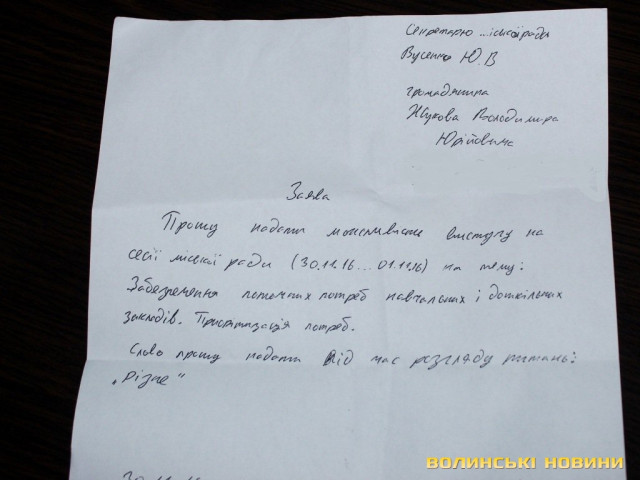 Секретарю ...іської ради
Вусенко Ю.В
громадянина
Жукова Володимира
Юрійовича
Заява
Прошу надати можливість виступу на
сесії міської ради (30.11.16...01.11.16) на тему:
Забезпечення поточних потреб навчальних і дошкільних
закладів. Приоритизація потреб.
Слово прошу надати під час розгляду питань:
„Різне“
ВОЛИНСЬКІ НОВИНИ